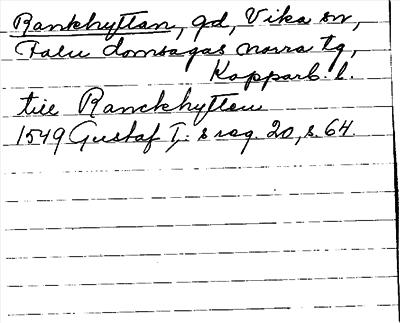 Rankhyttan, gd, Vika sn,
Falu domsagas norra tg,
Kopparb. l.
till Ranckhytten
1549 Gustaf I:s reg. 20, s. 64.